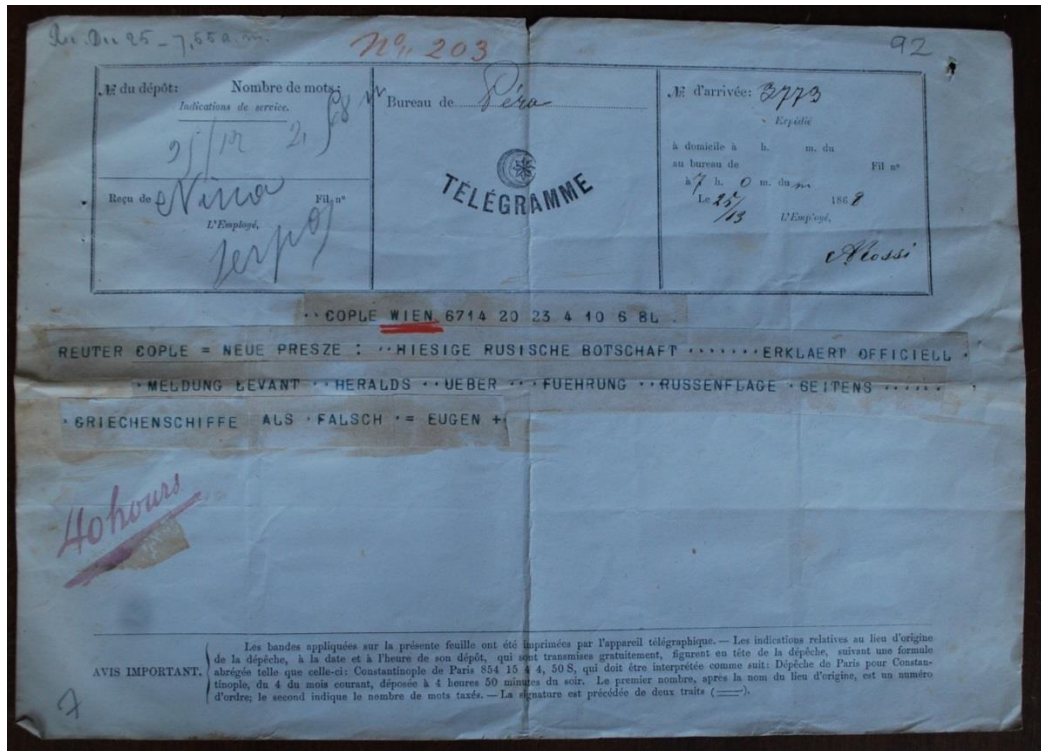 Rec. Dec 25 - 7,55 a.m.
No. 203
92
№ du dépôt: Nombre de mots:
Indications de service.
25/12
Reçu de Nina Fil nº
L'Employé,
Bureau de Péra
TÉLÉGRAMME
№ d'arrivée: 3773
Expédié
à domicile à h. m. du
au bureau de Fil nº
à 7 h. 0 m. du m
Le 25/13 1868
L'Employé,
ARossi
COPLE WIEN 6714 20 23 4 10 6 8L
REUTER COPLE = NEUE PRESZE : HIESIGE RUSISCHE BOTSCHAFT ERKLAERT OFFICIELL
MELDUNG LEVANT HERALDS UEBER FUEHRUNG RUSSENFLAGE SEITENS
GRIECHENSCHIFFE ALS FALSCH = EUGEN +
40 hours
AVIS IMPORTANT.
Les bandes appliquées sur la présente feuille ont été imprimées par l'appareil télégraphique. — Les indications relatives au lieu d'origine
de la dépêche, à la date et à l'heure de son dépôt, qui sont transmises gratuitement, figurent en tête de la dépêche, suivant une formule
abrégée telle que celle-ci: Constantinople de Paris 854 15 4 4, 50 S, qui doit être interprétée comme suit: Dépêche de Paris pour Constan-
tinople, du 4 du mois courant, déposée à 4 heures 50 minutes du soir. Le premier nombre, après la nom du lieu d'origine, est un numéro
d'ordre; le second indique le nombre de mots taxés. — La signature est précédée de deux traits (═).
7